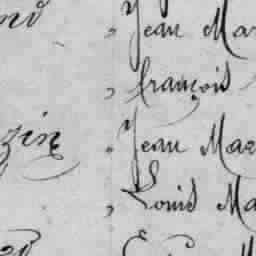 , Jean Mar
, françois
zin , Jean Mar
, Louis Ma